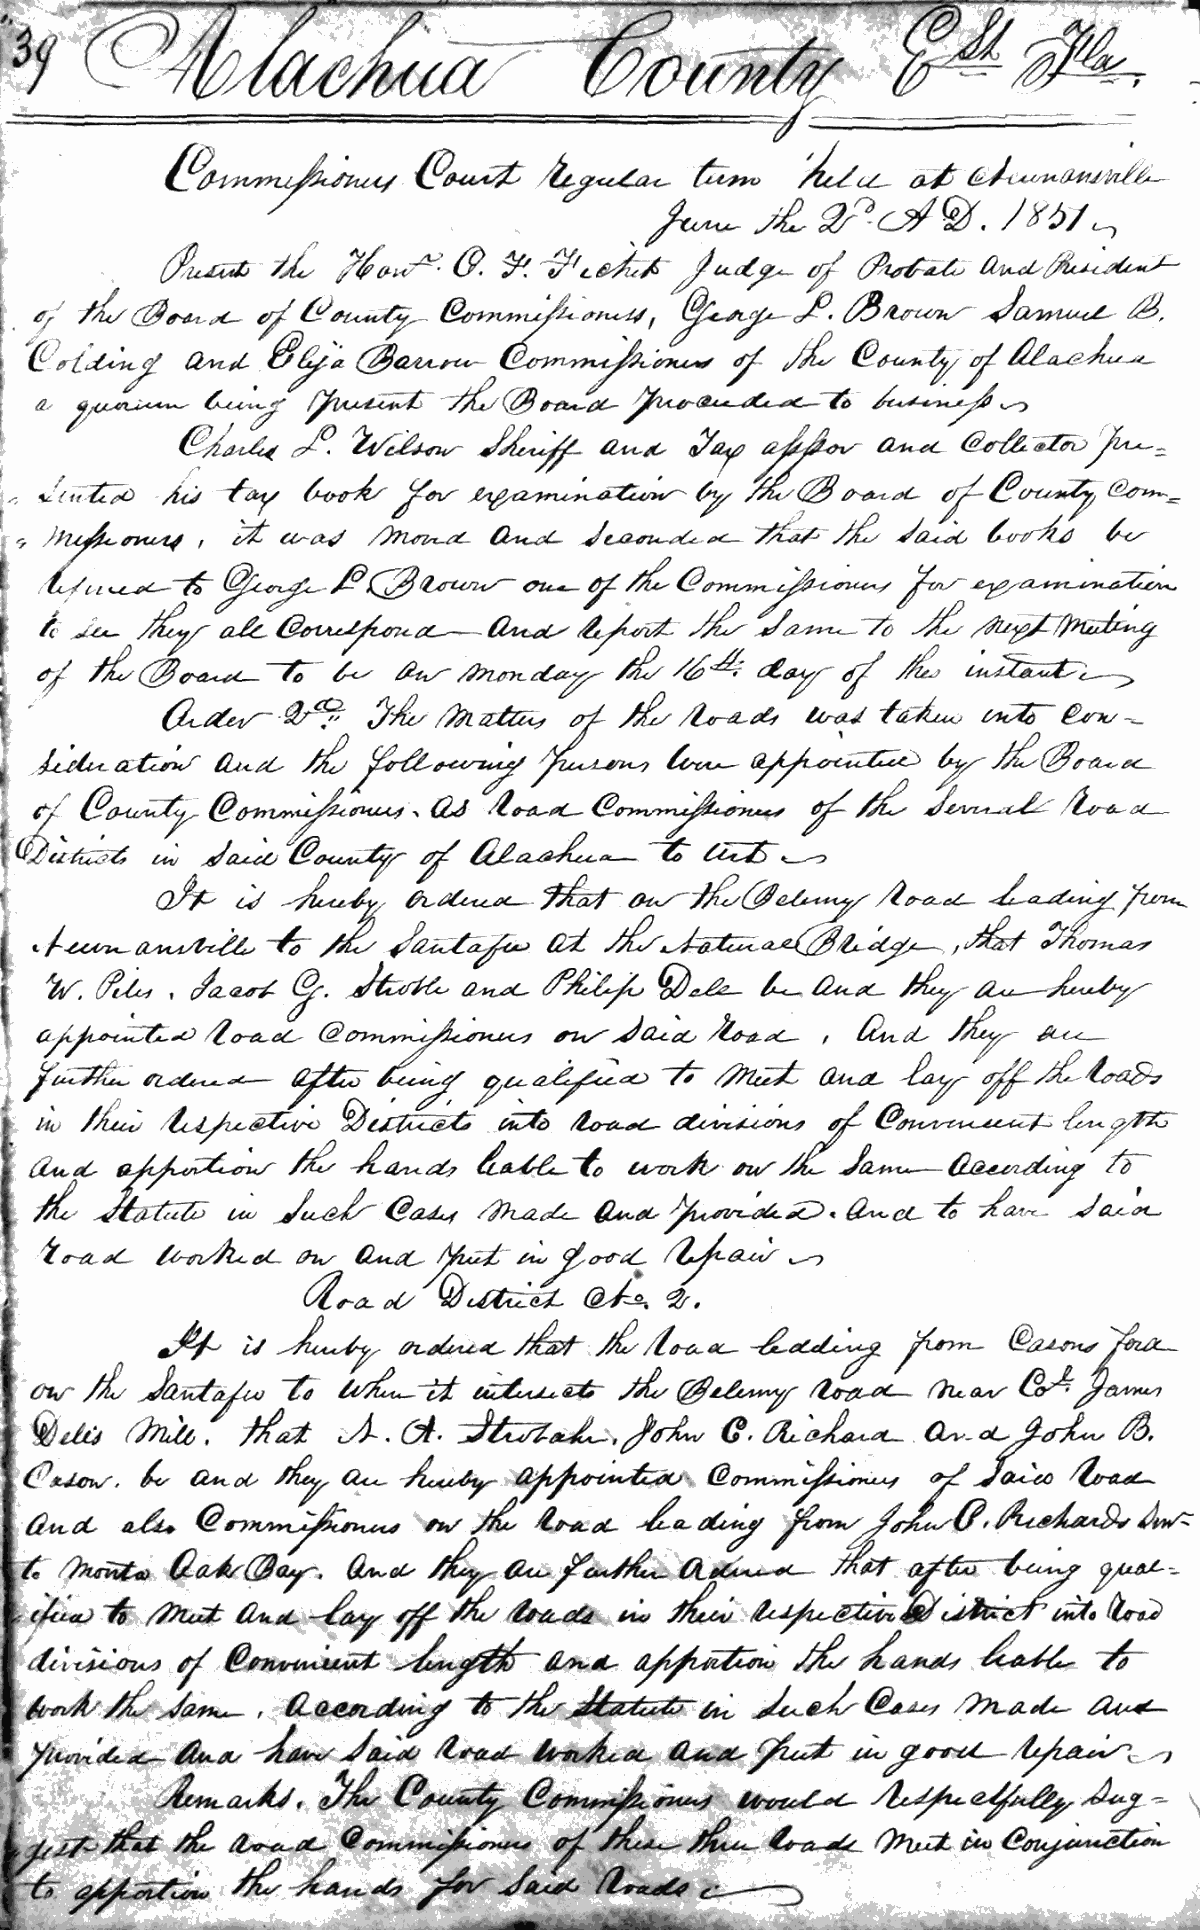 39 Alachua County E St Fla.
Commissioners Court regular term held at Newnansville
June the 2d. A D. 1851
Present the Honr. O. F. Fitch Judge of Probate and President
of the Board of County Commissioners, George L. Brown Samuel B.
Colding and Elija Barrow Commissioners of the County of Alachua
a quorum being present the Board proceeded to business
Charles L. Wilson Sheriff and Tax assor and Collector pre=
sented his tax book for examination by the Board of County Com=
=missioners, it was moved and seconded that the said books be
refered to George L. Brown one of the Commissioners for examination
to see they all Correspond and report the same to the next Meeting
of the Board to be on monday the 16th. day of this instant
Order 2d. The Matters of the roads was taken into Con=
sideration and the following persons were appointed by the Board
of County Commissioners. as road Commissioners of the several road
Districts in said County of Alachua to wit
It is hereby ordered that on the Belemy road leading from
Newnansville to the Santafee at the Natural Bridge, that Thomas
W. Piles. Jacob G. Stroble and Philip Dell be and they are hereby
appointed road Commissioners on said road, and they are
further ordered after being qualified to Meet and lay off the roads
in their respective Districts into road divisions of Convenient length
and apportion the hands leable to work on the same according to
the Statute in such Cases made and provided. and to have said
road worked on and put in good repair
Road District No. 2.
It is hereby ordered that the road ledding from Casons ford
on the Santafee to when it intersects the Belemy road near Col. James
Dells Mill. that N. A. Strobahr. John C. Richard and John B.
Cason. be and they are hereby appointed Commissioners of said road
and also Commissioners on the road leading from John C. Richards
to Oak Bay. and they are further adred that after being qual=
ified to meet and lay off the roads in their respective District into road
divisions of Convenient length and apportion the hands leable to
work the same. according to the Statute in such Cases made and
provided and have said road worked and put in good repair
Remarks. The County Commissioners would respectfully sug=
gest that the road Commissioners of these three roads Meet in Conjunction
to apportion the hands for said roads